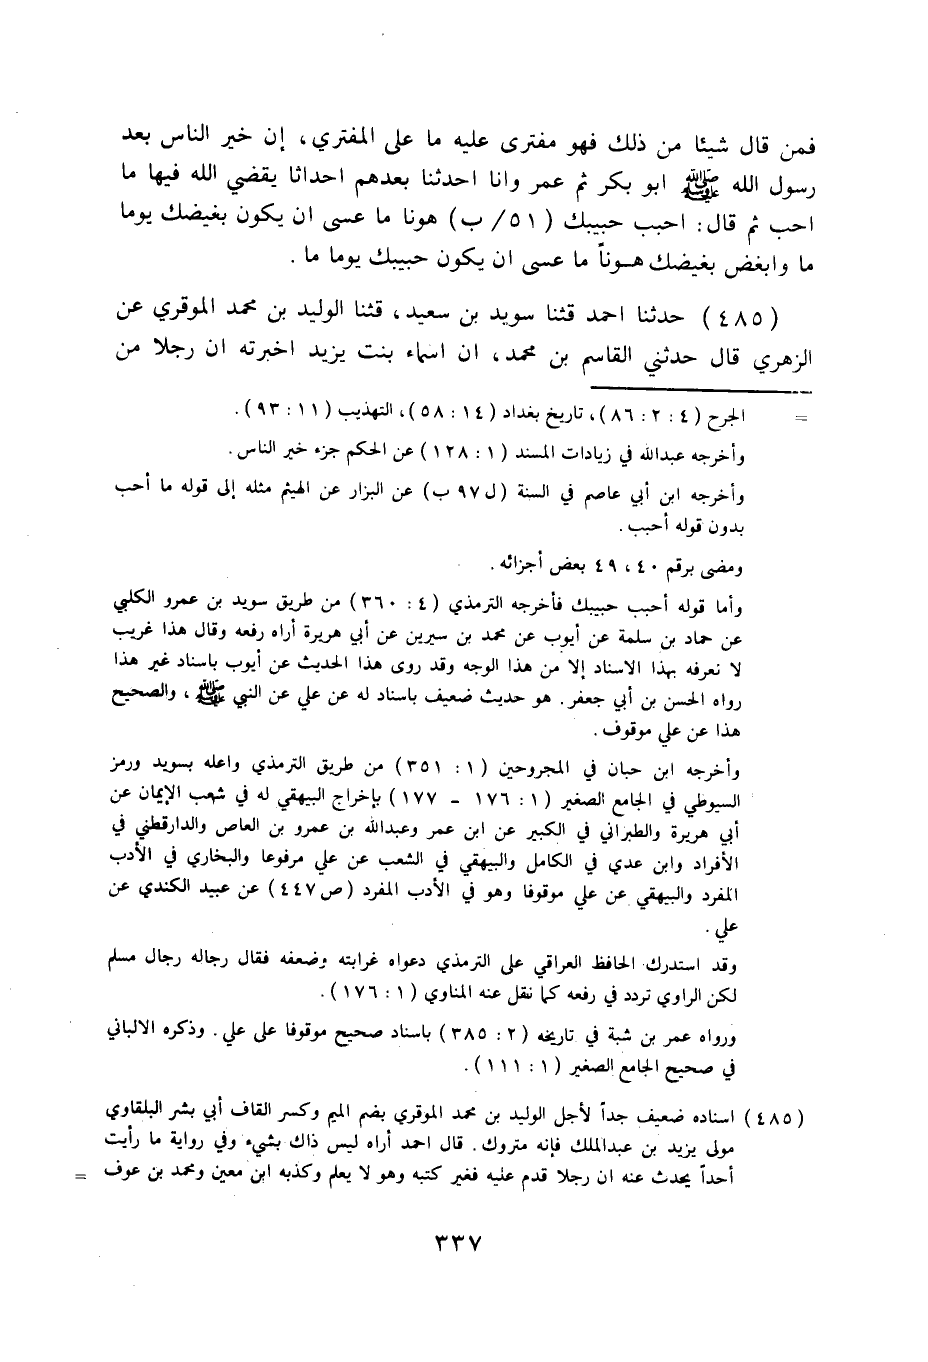 فمن قال شيئا من ذلك فهو مفترى عليه ما على المفتري، إن خير الناس بعد
رسول الله ﷺ ابو بكر ثم عمر وانا احدثنا بعدهم احداثا يقضي الله فيها ما
احب ثم قال: احبب حبيبك (٥١/ ب) هونا ما عسى ان يكون بغيضك يوما
ما وابغض بغيضك هـوناً ما عسى ان يكون حبيبك يوما ما.
(٤٨٥) حدثنا احمد قثنا سويد بن سعيد، قثنا الوليد بن محمد الموقري عن
الزهري قال حدثني القاسم بن محمد، ان اسماء بنت يزيد اخبرته ان رجلا من
= الجرح (٤: ٢: ٨٦)، تاريخ بغداد (١٤: ٥٨)، التهذيب (١١: ٩٣).
وأخرجه عبدالله في زيادات المسند (١: ١٢٨) عن الحكم جزء خير الناس.
وأخرجه ابن أبي عاصم في السنة (ل٩٧ ب) عن البزار عن الهيثم مثله إلى قوله ما أحب
بدون قوله أحبب.
ومضى برقم ٤٠، ٤٩ بعض أجزائه.
وأما قوله أحبب حبيبك فأخرجه الترمذي (٤: ٣٦٠) من طريق سويد بن عمرو الكلبي
عن حماد بن سلمة عن أيوب عن محمد بن سيرين عن أبي هريرة أراه رفعه وقال هذا غريب
لا نعرفه بهذا الاسناد إلا من هذا الوجه وقد روى هذا الحديث عن أيوب باسناد غير هذا
رواه الحسن بن أبي جعفر. هو حديث ضعيف باسناد له عن علي عن النبي ﷺ، والصحيح
هذا عن علي موقوف.
وأخرجه ابن حبان في المجروحين (١: ٣٥١) من طريق الترمذي واعله بسويد ورمز
السيوطي في الجامع الصغير (١: ١٧٦ - ١٧٧) بإخراج البيهقي له في شعب الإيمان عن
أبي هريرة والطبراني في الكبير عن ابن عمر وعبدالله بن عمرو بن العاص والدارقطني في
الأفراد وابن عدي في الكامل والبيهقي في الشعب عن علي مرفوعا والبخاري في الأدب
المفرد والبيهقي عن علي موقوفا وهو في الأدب المفرد (ص٤٤٧) عن عبيد الكندي عن
علي.
وقد استدرك الحافظ العراقي على الترمذي دعواه غرابته وضعفه فقال رجاله رجال مسلم
لكن الراوي تردد في رفعه كما نقل عنه المناوي (١: ١٧٦).
ورواه عمر بن شبة في تاريخه (٢: ٣٨٥) باسناد صحيح موقوفا على علي. وذكره الالباني
في صحيح الجامع الصغير (١: ١١١).
(٤٨٥) اسناده ضعيف جداً لأجل الوليد بن محمد الموقري بضم الميم وكسر القاف أبي بشر البلقاوي
مولى يزيد بن عبدالملك فإنه متروك. قال احمد أراه ليس ذاك بشيء وفي رواية ما رأيت
أحداً يحدث عنه ان رجلا قدم عليه فغير كتبه وهو لا يعلم وكذبه ابن معين ومحمد بن عوف =
٣٣٧